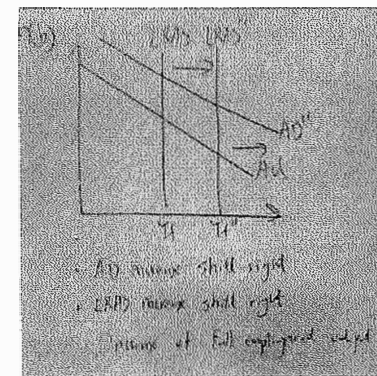 (b)
LRAS LRAS"
AD"
AD
Yf Yf"
. AD increase shift right
. LRAS increase shift right
Increase of Full employment output